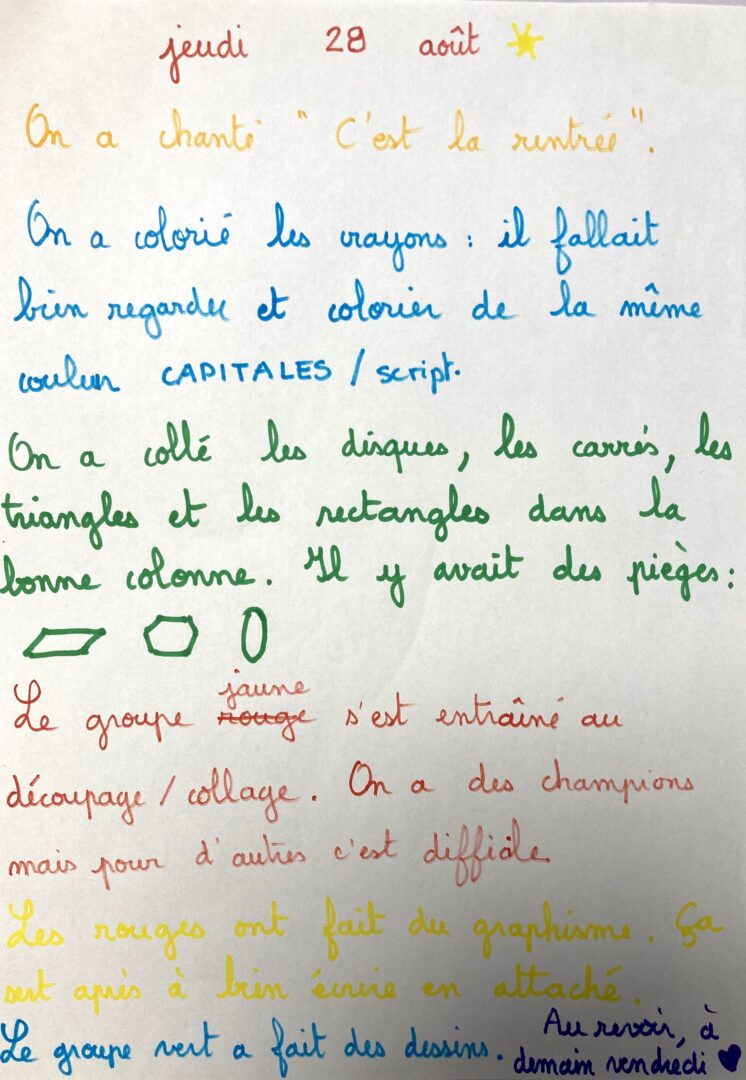 jeudi 28 août
On a chanté " C'est la rentrée".
On a colorié les crayons : il fallait
bien regarder et colorier de la même
couleur CAPITALES / script.
On a collé les disques, les carrés, les
triangles et les rectangles dans la
bonne colonne. Il y avait des pièges :
jaune
Le groupe rouge s'est entraîné au
découpage / collage. On a des champions
mais pour d'autres c'est difficile.
Les rouges ont fait du graphisme. Ça
sert après à bien écrire en attaché.
Le groupe vert a fait des dessins.
Au revoir, à
demain vendredi